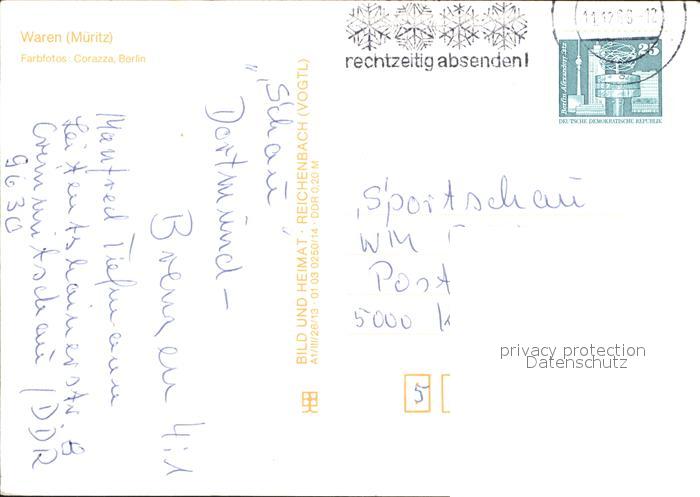 Waren (Müritz)
Farbfotos: Corazza, Berlin
rechtzeitig absenden!
11.12.86-12
25
Berlin, Alexanderplatz
DEUTSCHE DEMOKRATISCHE REPUBLIK
BILD UND HEIMAT · REICHENBACH (VOGTL)
A1/III/26/13 · 01 03 0250/14 · DDR 0,20 M
"Schau"
Dortmund -
Bremen 4:1
Manfred
Crimmitschau / DDR
9630
"Sportschau
WM
Post
5000 K
5
privacy protection
Datenschutz